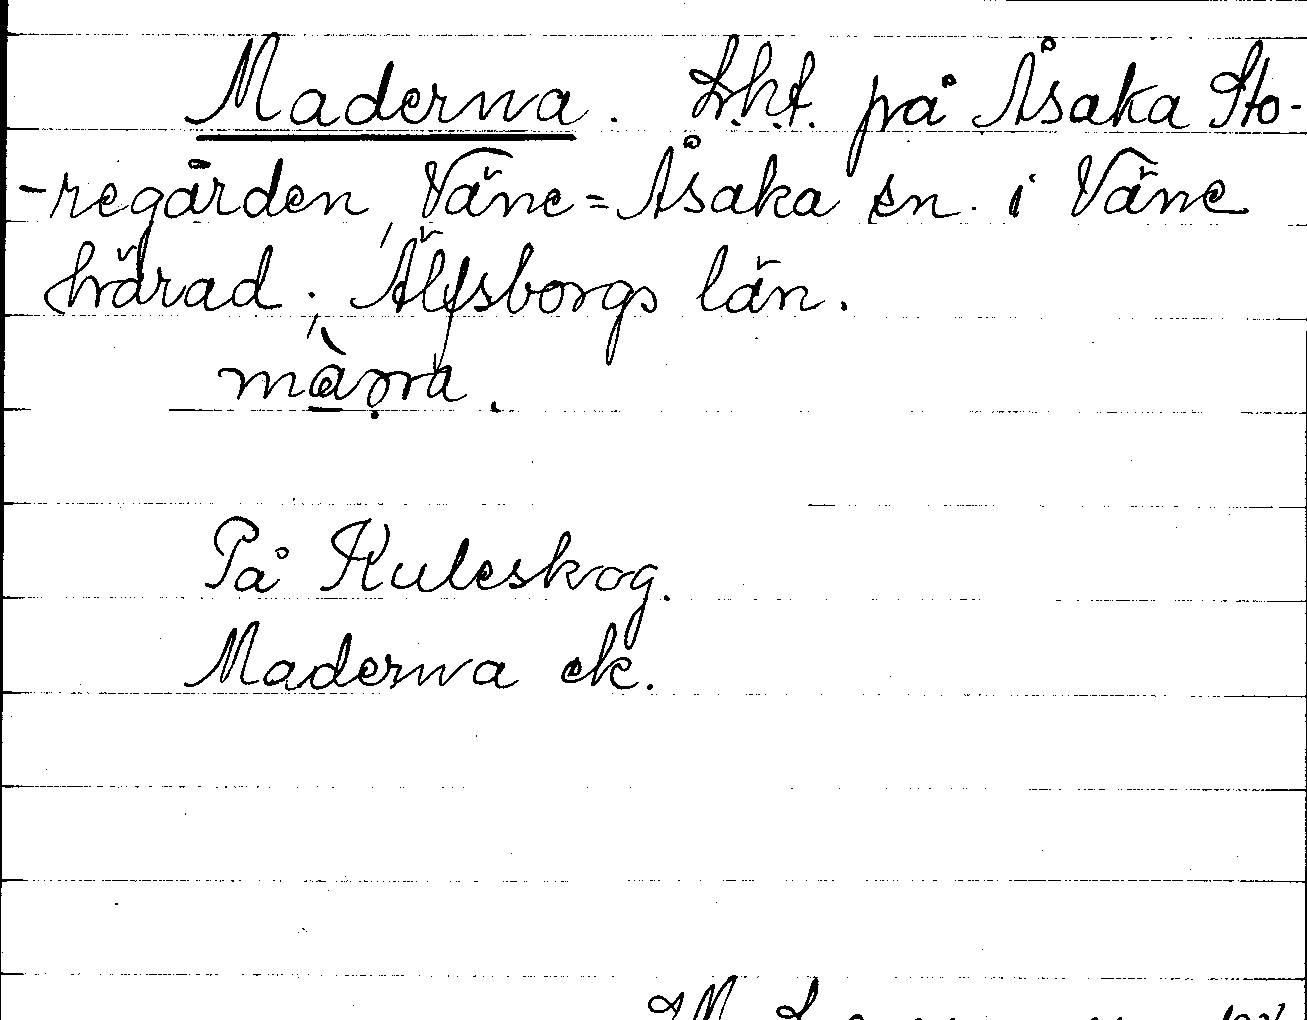 Maderna. Lht. på Åsaka Sto-
-regården, Väne=Åsaka sn. i Väne
härad, Älfsborgs län.
På Kuleskog.
Maderna ek.